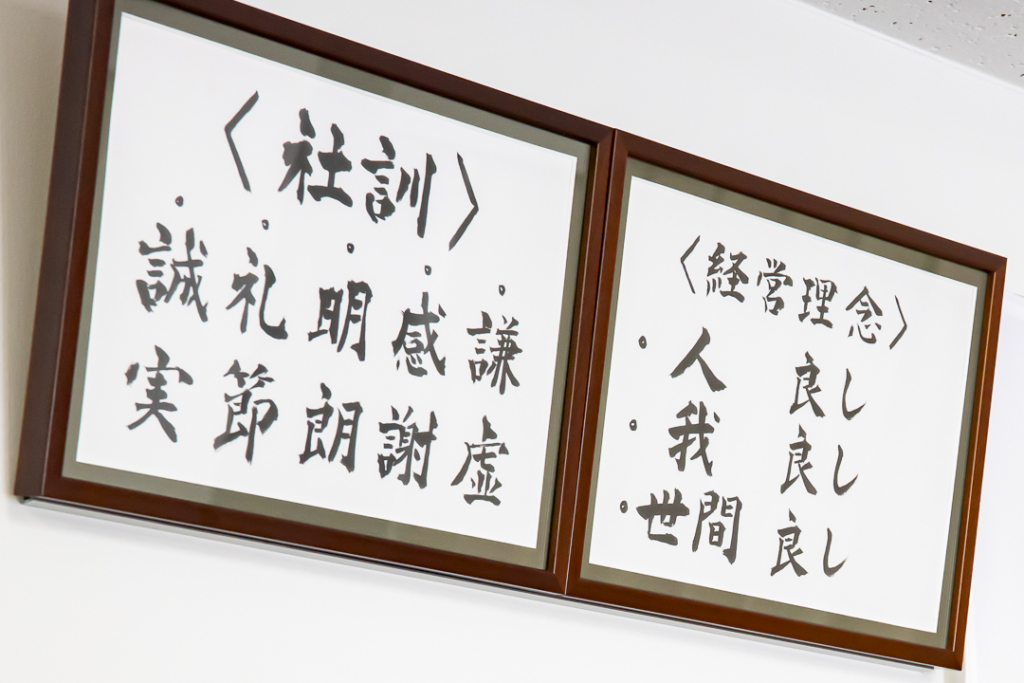 〈社訓〉
・謙虚
・感謝
・明朗
・礼節
・誠実
〈経営理念〉
・人 良し
・我 良し
・世間 良し